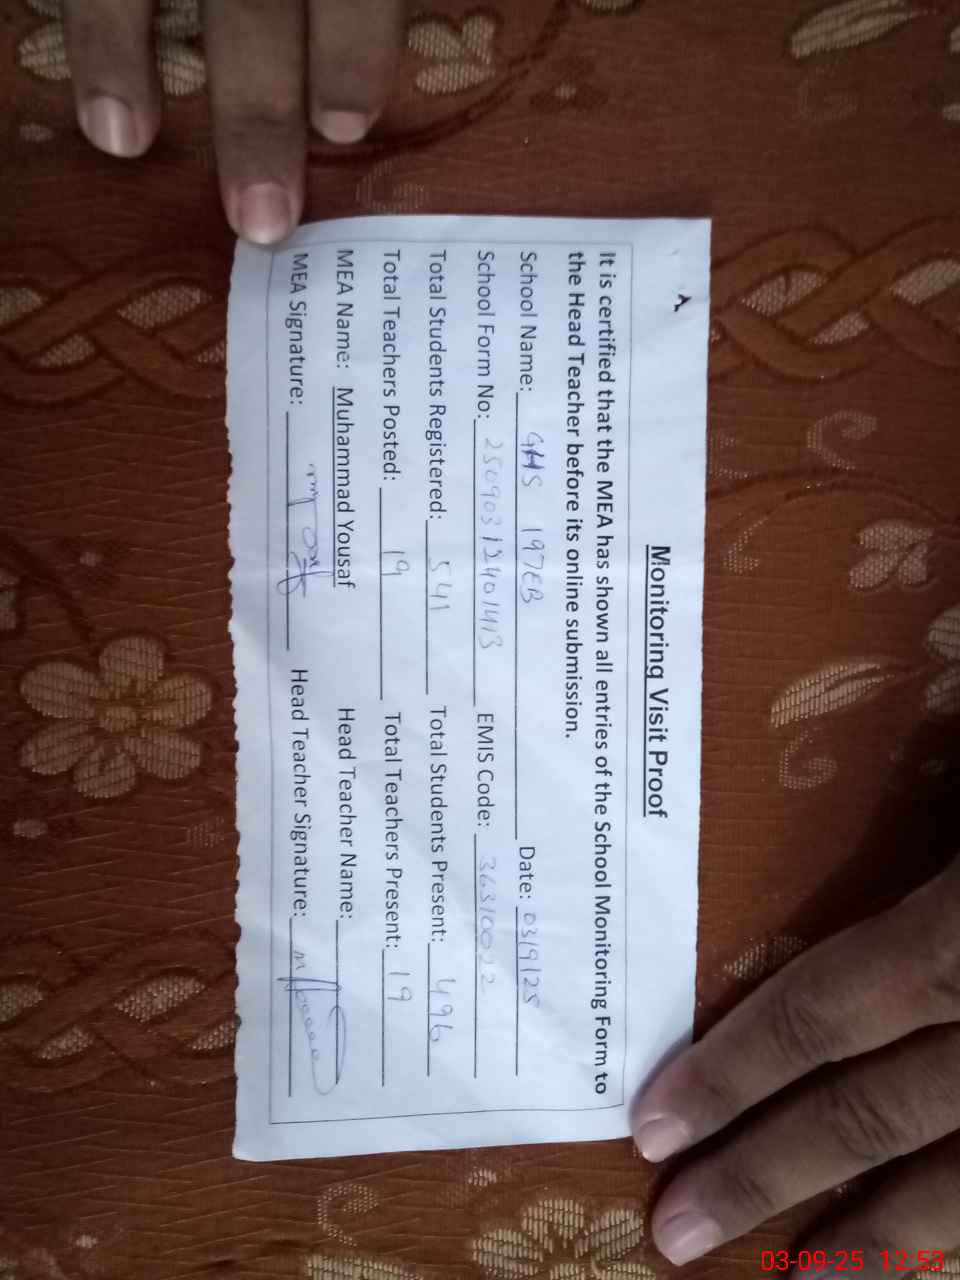 A
Monitoring Visit Proof
It is certified that the MEA has shown all entries of the School Monitoring Form to
the Head Teacher before its online submission.
School Name: GHS 197EB Date: 03/9/25
School Form No: 25090312401413 EMIS Code: 36310022
Total Students Registered: 541 Total Students Present: 496
Total Teachers Posted: 19 Total Teachers Present: 19
MEA Name: Muhammad Yousaf Head Teacher Name:
MEA Signature: Head Teacher Signature:
03-09-25 12:53